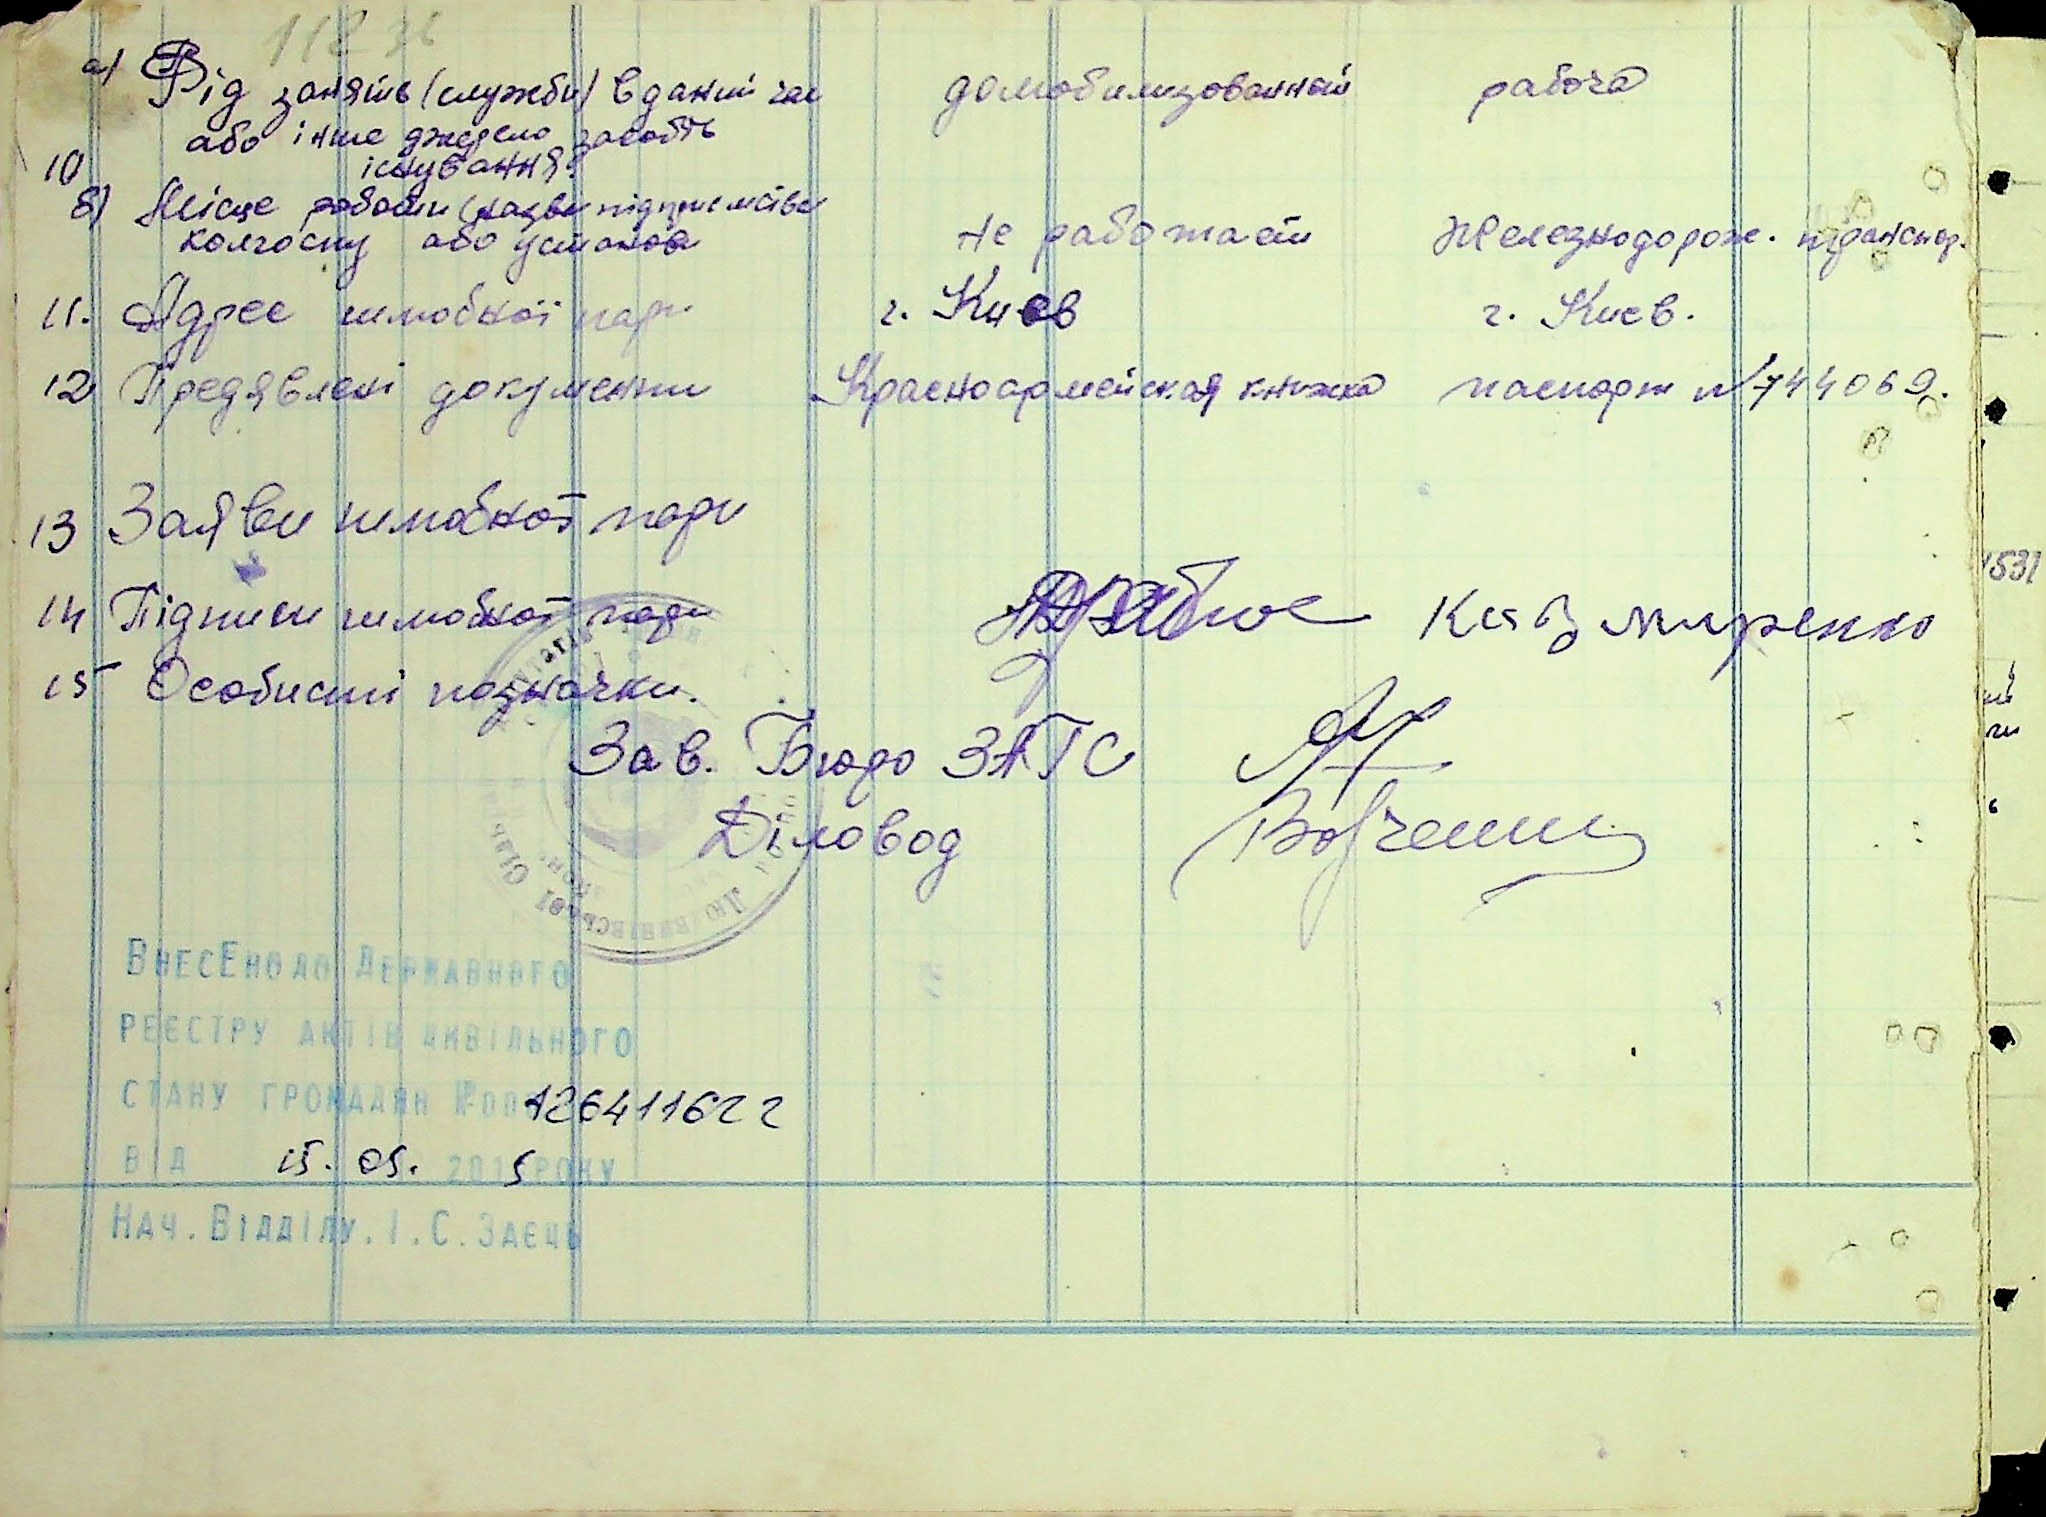 а) Рід занять (служби) в даний час домобилизованный рабоча
або інше джерело засобів
10 існування.
б) Місце роботи (назва підприємства
колгоспу або установи не работает Железнодорож. транспор.
11. Адрес шлюбної пари г. Киев г. Киев.
12 Предявлені документи Красноармейская книжка паспорт №744069.
13 Заяви шлюбної пари
14 Підписи шлюбної пари Казмиренко
15 Особисті позначки.
Зав. Бюро ЗАГС
Діловод
ВнесЕно до Державного
реєстру актів цивільного
стану громадян №00126411622
від 15.05. 2015 року
Нач. Відділу. І.С. Заєць
1531